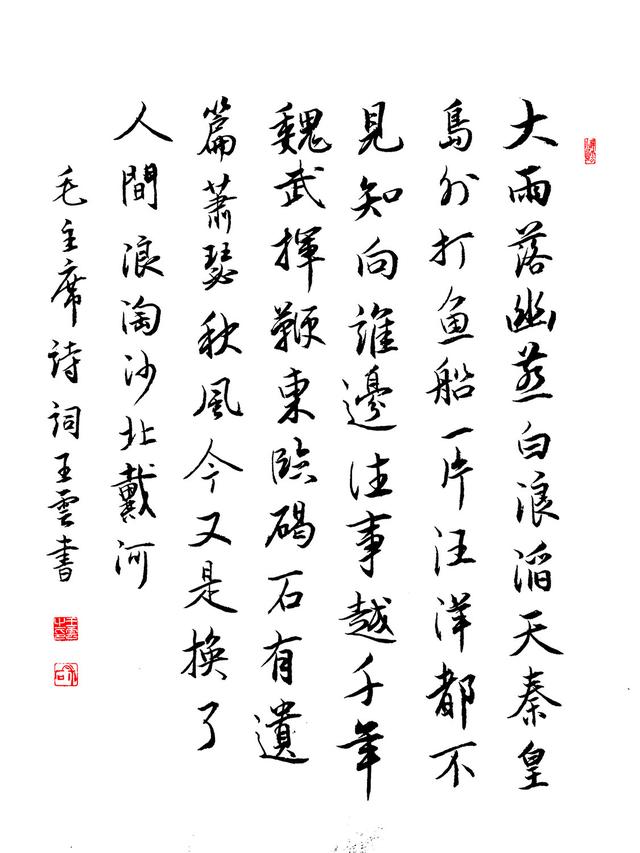 大雨落幽燕白浪滔天秦皇
島外打鱼船一片汪洋都不
見知向誰邊往事越千年
魏武揮鞭東臨碣石有遺
篇蕭瑟秋風今又是換了
人間浪淘沙北戴河
毛主席詩詞王雲書